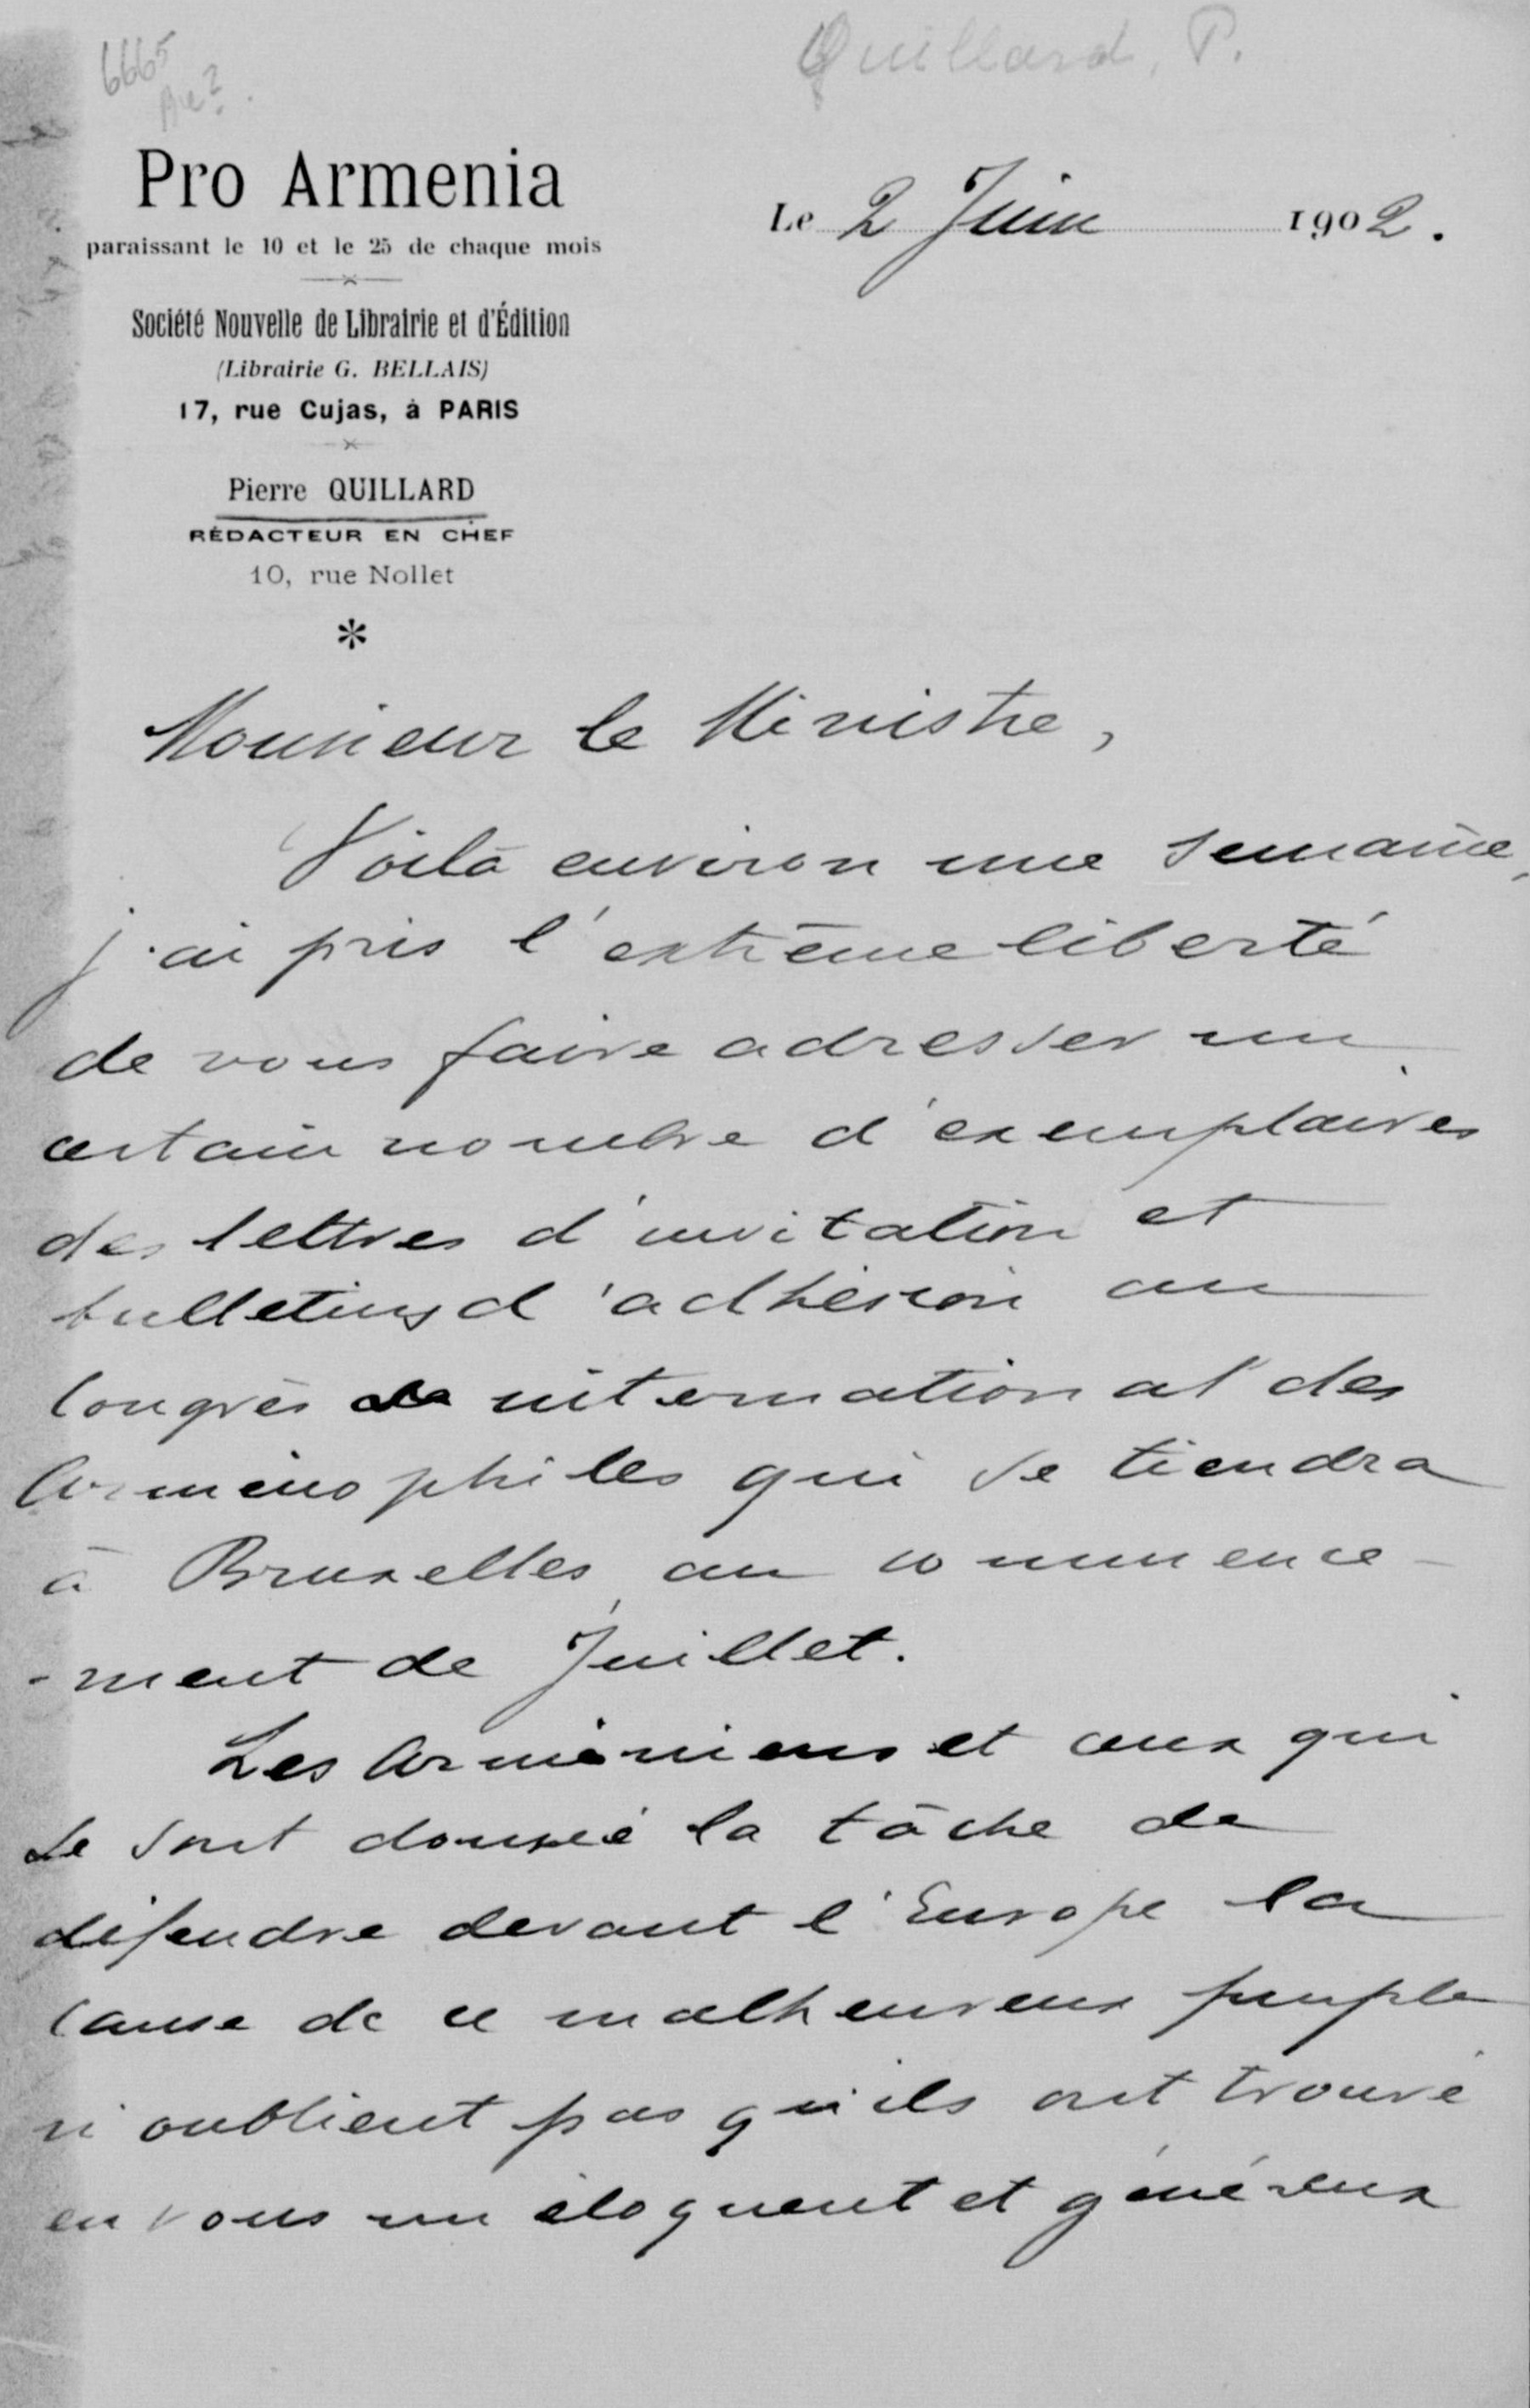 6665
Quillard, P.
Pro Armenia
paraissant le 10 et le 25 de chaque mois
Société Nouvelle de Librairie et d'Édition
(Librairie G. BELLAIS)
17, rue Cujas, à PARIS
Pierre QUILLARD
RÉDACTEUR EN CHEF
10, rue Nollet
*
Le 2 Juin 1902.
Monsieur le Ministre,
Voilà environ une semaine,
j'ai pris l'extrême liberté
de vous faire adresser un
certain nombre d'exemplaires
des lettres d'invitation et
bulletins d'adhésion au
Congrès international des
Arménophiles qui se tiendra
à Bruxelles, au commence-
-ment de Juillet.
Les Arméniens et ceux qui
se sont donné la tâche de
défendre devant l'Europe la
cause de ce malheureux peuple
n'oublient pas qu'ils ont trouvé
en vous un éloquent et généreux